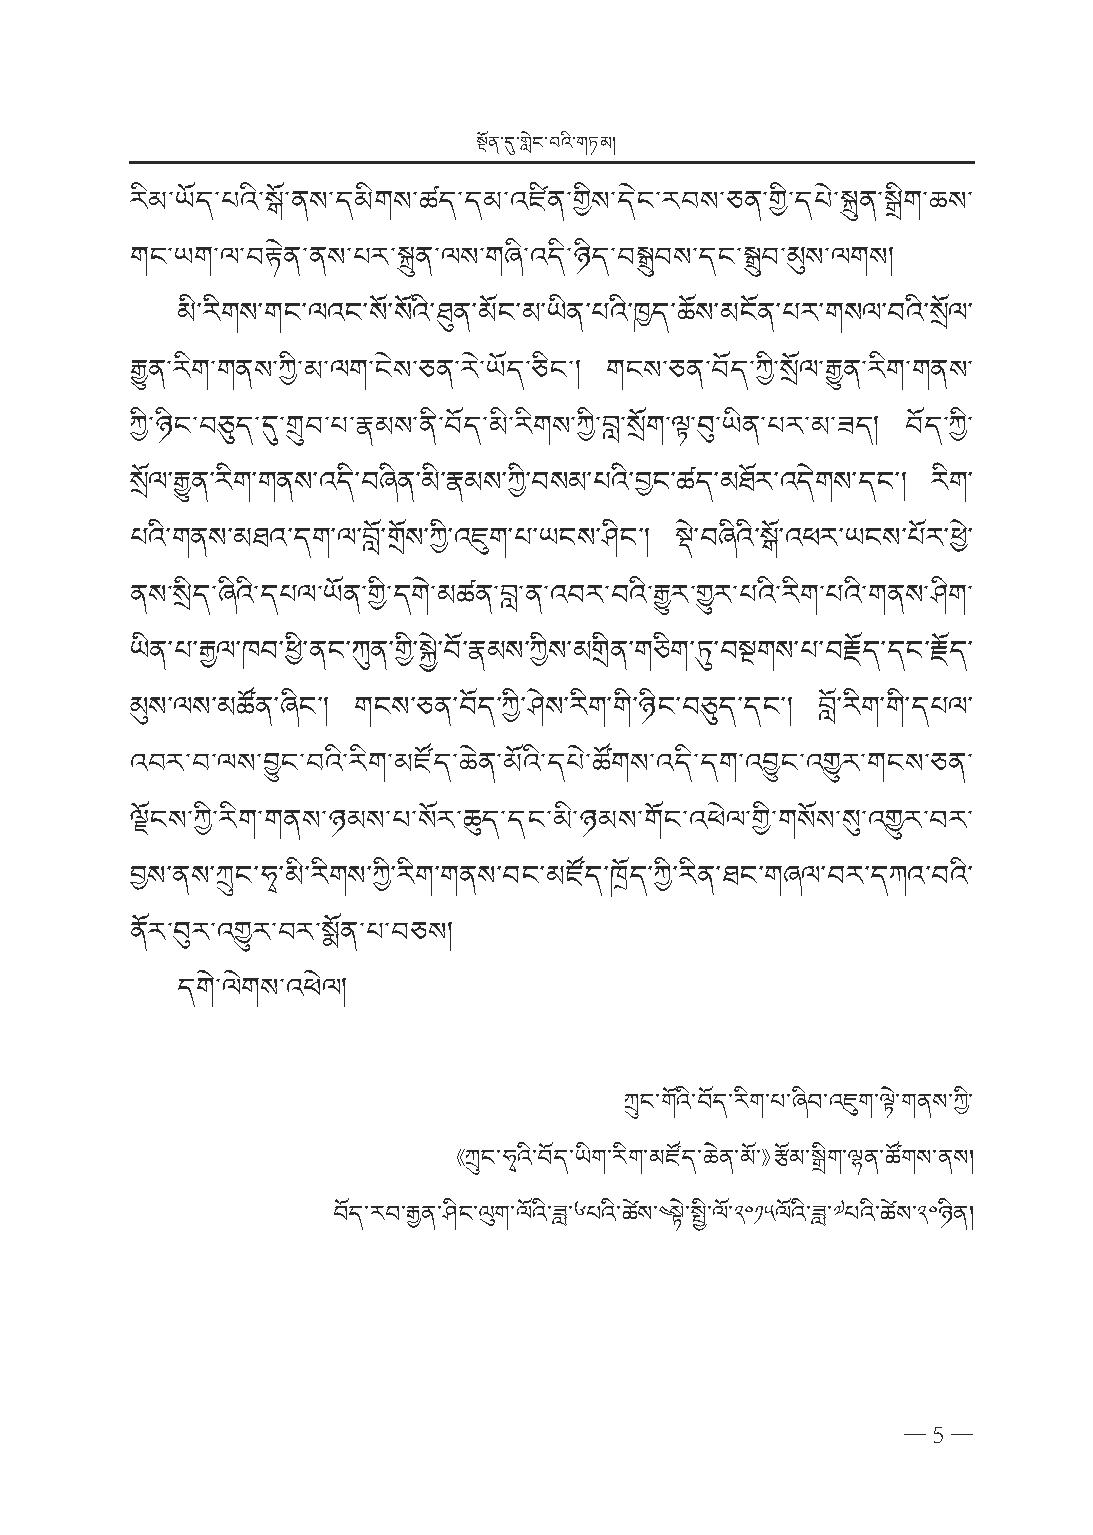 སྔོན་དུ་གླེང་བའི་གཏམ།
རིམ་ཡོད་པའི་སྒོ་ནས་དམིགས་ཚད་དམ་འཛིན་གྱིས་དེང་རབས་ཅན་གྱི་དཔེ་སྐྲུན་སྒྲིག་ཆས་
གང་ཡག་ལ་བརྟེན་ནས་པར་སྐྲུན་ལས་གཞི་འདི་ཉིད་བསྒྲུབས་དང་སྒྲུབ་མུས་ལགས།
མི་རིགས་གང་ལའང་སོ་སོའི་ཐུན་མོང་མ་ཡིན་པའི་ཁྱད་ཆོས་མངོན་པར་གསལ་བའི་སྲོལ་
རྒྱུན་རིག་གནས་ཀྱི་མ་ལག་ངེས་ཅན་རེ་ཡོད་ཅིང་། གངས་ཅན་བོད་ཀྱི་སྲོལ་རྒྱུན་རིག་གནས་
ཀྱི་ཉིང་བཅུད་དུ་གྲུབ་པ་རྣམས་ནི་བོད་མི་རིགས་ཀྱི་བླ་སྲོག་ལྟ་བུ་ཡིན་པར་མ་ཟད། བོད་ཀྱི་
སྲོལ་རྒྱུན་རིག་གནས་འདི་བཞིན་མི་རྣམས་ཀྱི་བསམ་པའི་བྱང་ཚད་མཐོར་འདེགས་དང་། རིག་
པའི་གནས་མཐའ་དག་ལ་བློ་གྲོས་ཀྱི་འཇུག་པ་ཡངས་ཤིང་། སྡེ་བཞིའི་སྒོ་འཕར་ཡངས་པོར་ཕྱེ་
ནས་སྲིད་ཞིའི་དཔལ་ཡོན་གྱི་དགེ་མཚན་བླ་ན་འབར་བའི་རྒྱུར་གྱུར་པའི་རིག་པའི་གནས་ཤིག་
ཡིན་པ་རྒྱལ་ཁབ་ཕྱི་ནང་ཀུན་གྱི་སྐྱེ་བོ་རྣམས་ཀྱིས་མགྲིན་གཅིག་ཏུ་བསྔགས་པ་བརྗོད་དང་རྗོད་
མུས་ལས་མཚོན་ཞིང་། གངས་ཅན་བོད་ཀྱི་ཤེས་རིག་གི་ཉིང་བཅུད་དང་། བློ་རིག་གི་དཔལ་
འབར་བ་ལས་བྱུང་བའི་རིག་མཛོད་ཆེན་མོའི་དཔེ་ཚོགས་འདི་དག་འབྱུང་འགྱུར་གངས་ཅན་
ལྗོངས་ཀྱི་རིག་གནས་ཉམས་པ་སོར་ཆུད་དང་མི་ཉམས་གོང་འཕེལ་གྱི་གསོས་སུ་འགྱུར་བར་
བྱས་ནས་ཀྲུང་ཧྭ་མི་རིགས་ཀྱི་རིག་གནས་བང་མཛོད་ཁྲོད་ཀྱི་རིན་ཐང་གཞལ་བར་དཀའ་བའི་
ནོར་བུར་འགྱུར་བར་སྨོན་པ་བཅས།
དགེ་ལེགས་འཕེལ།
ཀྲུང་གོའི་བོད་རིག་པ་ཞིབ་འཇུག་ལྟེ་གནས་ཀྱི་
《ཀྲུང་ཧྭའི་བོད་ཡིག་རིག་མཛོད་ཆེན་མོ་》རྩོམ་སྒྲིག་ལྷན་ཚོགས་ནས།
བོད་རབ་རྒྱན་ཤིང་ལུག་ལོའི་ཟླ་༦པའི་ཚེས་༤སྟེ་སྤྱི་ལོ་༢༠༡༥ལོའི་ཟླ་༧པའི་ཚེས་༢༠ཉིན།
— 5 —